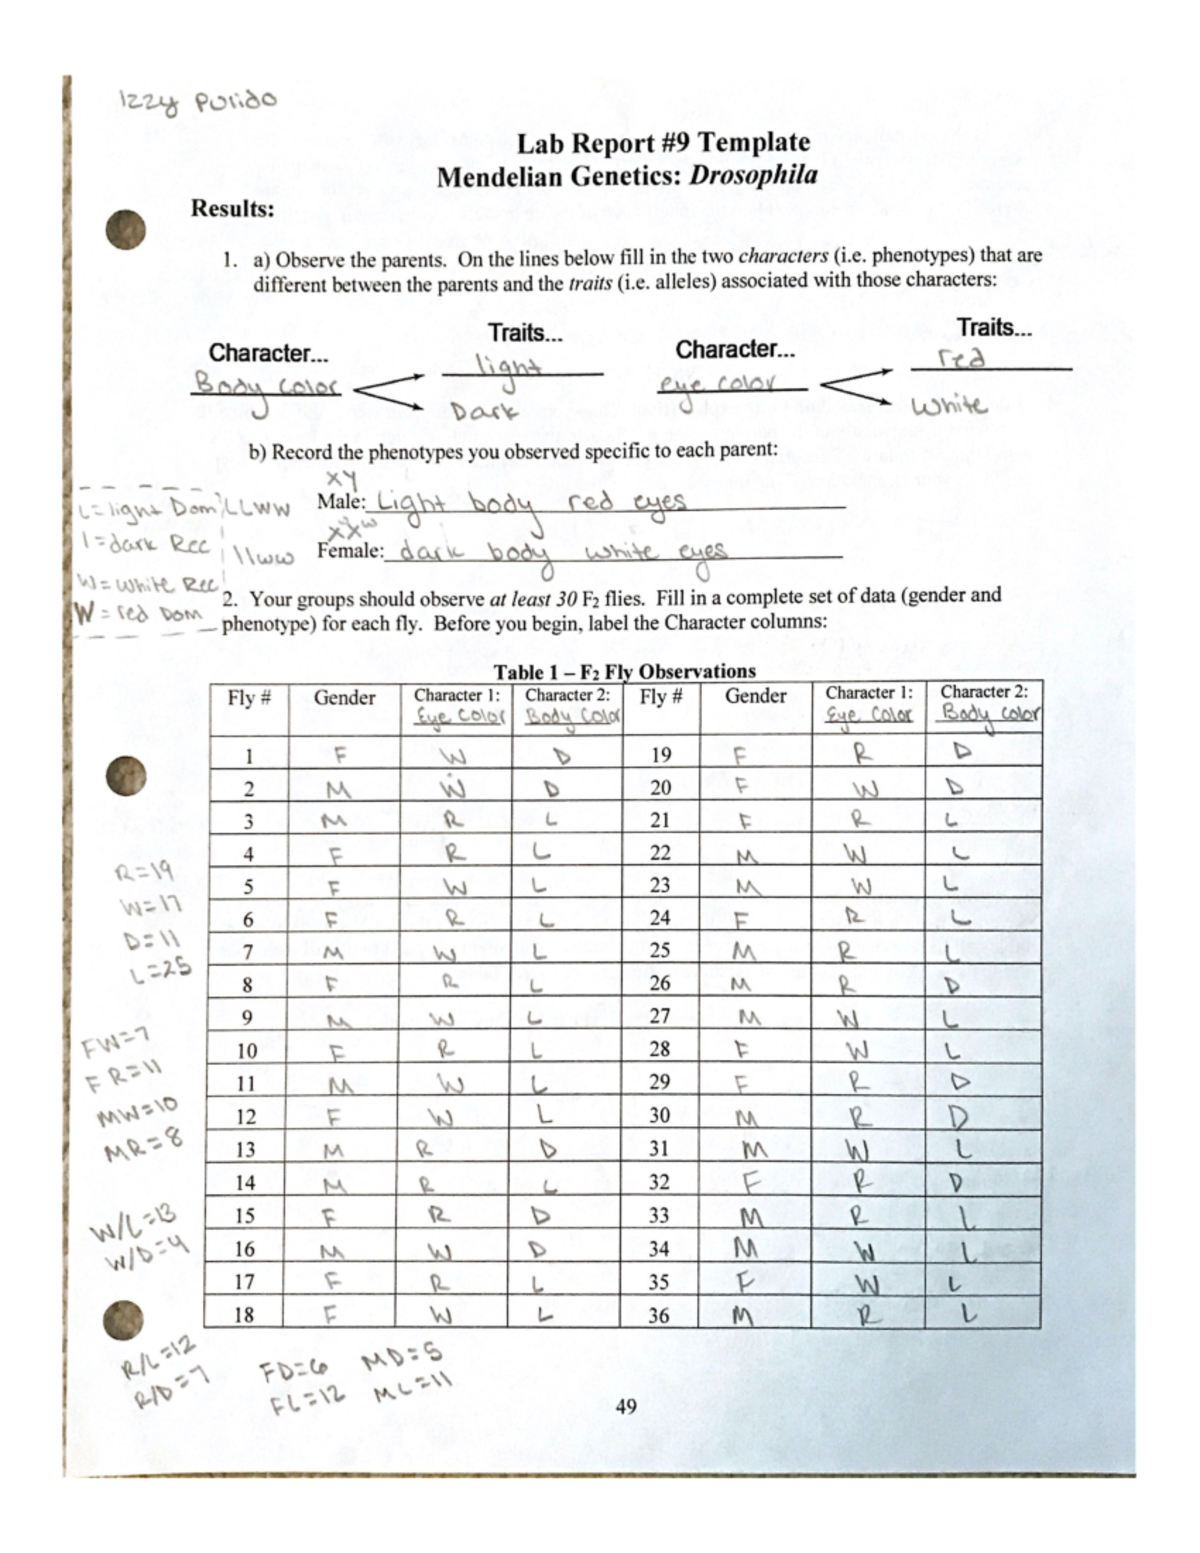 Izzy Pulido
Lab Report #9 Template
Mendelian Genetics: Drosophila
Results:
1. a) Observe the parents. On the lines below fill in the two characters (i.e. phenotypes) that are
different between the parents and the traits (i.e. alleles) associated with those characters:
Character... Traits... Character... Traits...
Body Color light eye color red
Dark White
b) Record the phenotypes you observed specific to each parent:
XY
L=light Dom LLWW Male: Light body red eyes
XʷXʷ
l=dark Rec llww Female: dark body white eyes
w=white Rec
W=red Dom
2. Your groups should observe at least 30 F2 flies. Fill in a complete set of data (gender and
phenotype) for each fly. Before you begin, label the Character columns:
Table 1 – F2 Fly Observations
Fly # Gender Character 1: Character 2: Fly # Gender Character 1: Character 2:
Eye Color Body Color Eye Color Body Color
1 F W D 19 F R D
2 M W D 20 F W D
3 M R L 21 F R L
4 F R L 22 M W L
5 F W L 23 M W L
6 F R L 24 F R L
7 M W L 25 M R L
8 F R L 26 M R D
9 M W L 27 M W L
10 F R L 28 F W L
11 M W L 29 F R D
12 F W L 30 M R D
13 M R D 31 M W L
14 M R L 32 F R D
15 F R D 33 M R L
16 M W D 34 M W L
17 F R L 35 F W L
18 F W L 36 M R L
R=19
W=17
D=11
L=25
FW=7
FR=11
MW=10
MR=8
W/L=13
W/D=4
R/L=12
R/D=7
FD=6 MD=5
FL=12 ML=11
49